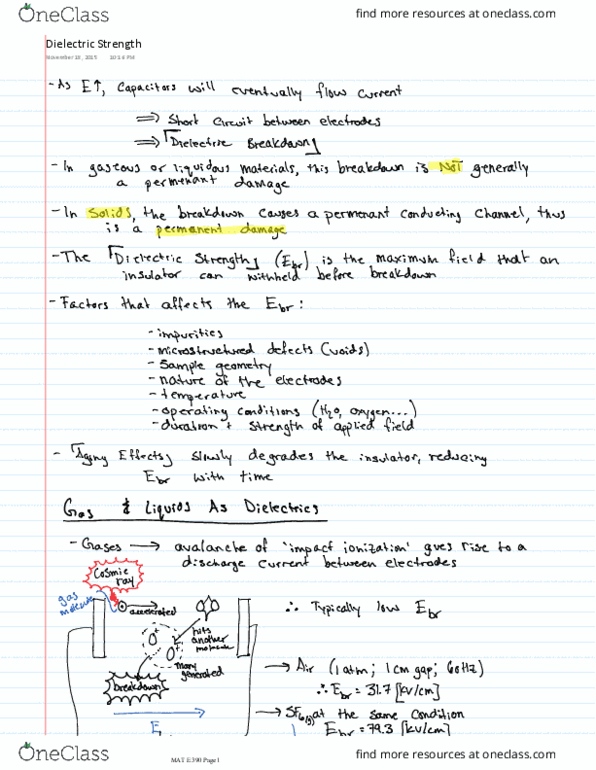 OneClass
find more resources at oneclass.com
Dielectric Strength
November 18, 2015 10:14 PM
- As E↑, Capacitors will eventually flow current
⇒ Short Circuit between electrodes
⇒ 「Dielectric Breakdown」
- In gaseous or liquidous materials, this breakdown is NOT generally
a permenant damage
- In Solids, the breakdown causes a permenant conducting channel, thus
is a permanent damage
- The 「Dielectric Strength」 (Ebr) is the maximum field that an
insulator can withheld before breakdown
- Factors that affects the Ebr:
- impurities
- microstructured defects (voids)
- Sample geometry
- nature of the electrodes
- temperature
- operating conditions (H2O, oxygen...)
- duration + strength of applied field
- 「Aging Effects」 slowly degrades the insulator, reducing
Ebr with time
Gas & Liquids As Dielectrics
- Gases → avalanche of 'impact ionization' gives rise to a
discharge current between electrodes
Cosmic
ray
gas
molecule
accelerated
hits
another
molecule
many
generated
breakdown
E
∴ Typically low Ebr
→ Air (1 atm; 1 cm gap; 60Hz)
∴ Ebr = 31.7 [kV/cm]
→ SF6(g) at the same condition
Ebr = 79.3 [kV/cm]
MAT E 390 Page 1
OneClass
find more resources at oneclass.com